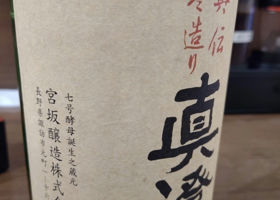 奥伝
寒造り
真澄
七号酵母誕生之蔵元
宮坂醸造株式会
長野県諏訪市元町一